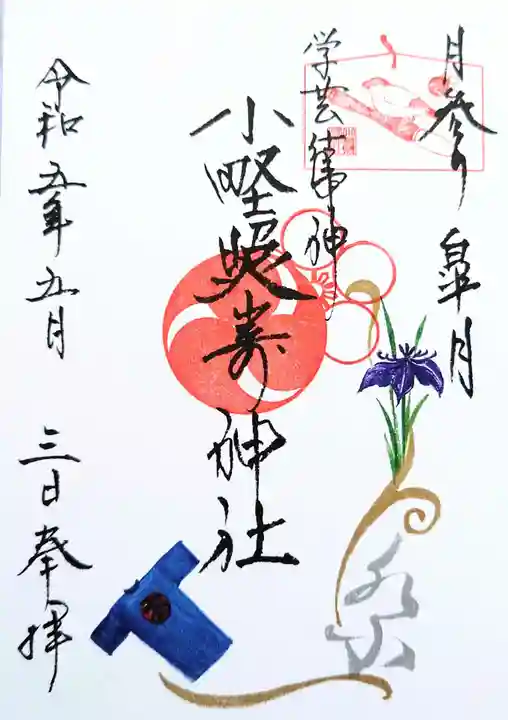 月参り 皐月
学芸神
小野照崎神社
令和五年五月 三日奉拝